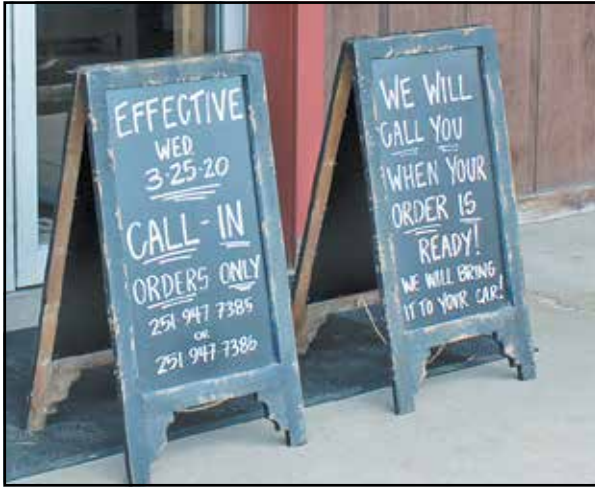 EFFECTIVE
WED
3-25-20
CALL-IN
ORDERS ONLY
251 947 7385
OR
251 947-7386
WE WILL
CALL YOU
WHEN YOUR
ORDER IS
READY!
WE WILL BRING
IT TO YOUR CAR!